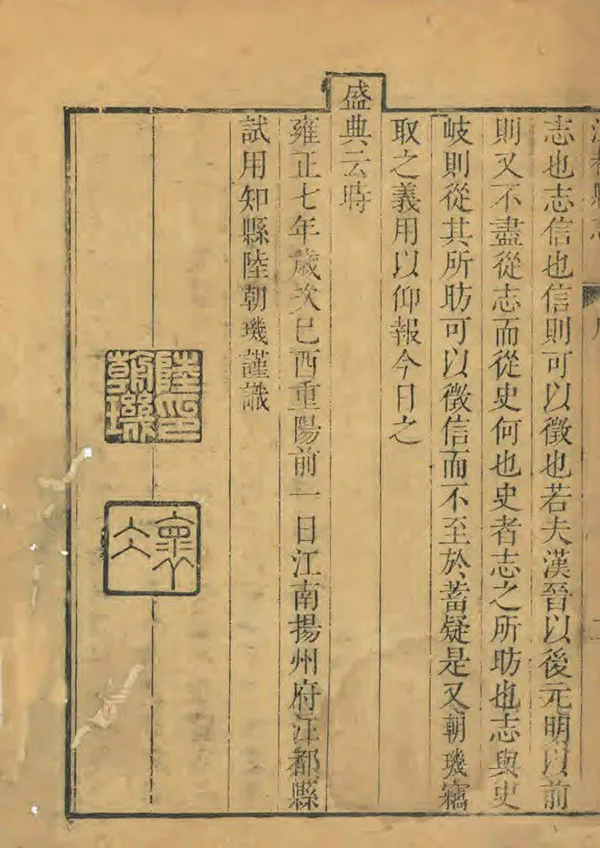 江都縣志
序
二
志也志信也信則可以徵也若夫漢晉以後元明以前
則又不盡從志而從史何也史者志之所昉也志與史
岐則從其所昉可以徵信而不至於蓄疑是又朝璣竊
取之義用以仰報今日之
盛典云時
雍正七年歲次己酉重陽前一日江南揚州府江都縣
試用知縣陸朝璣謹識
陸印
朝璣